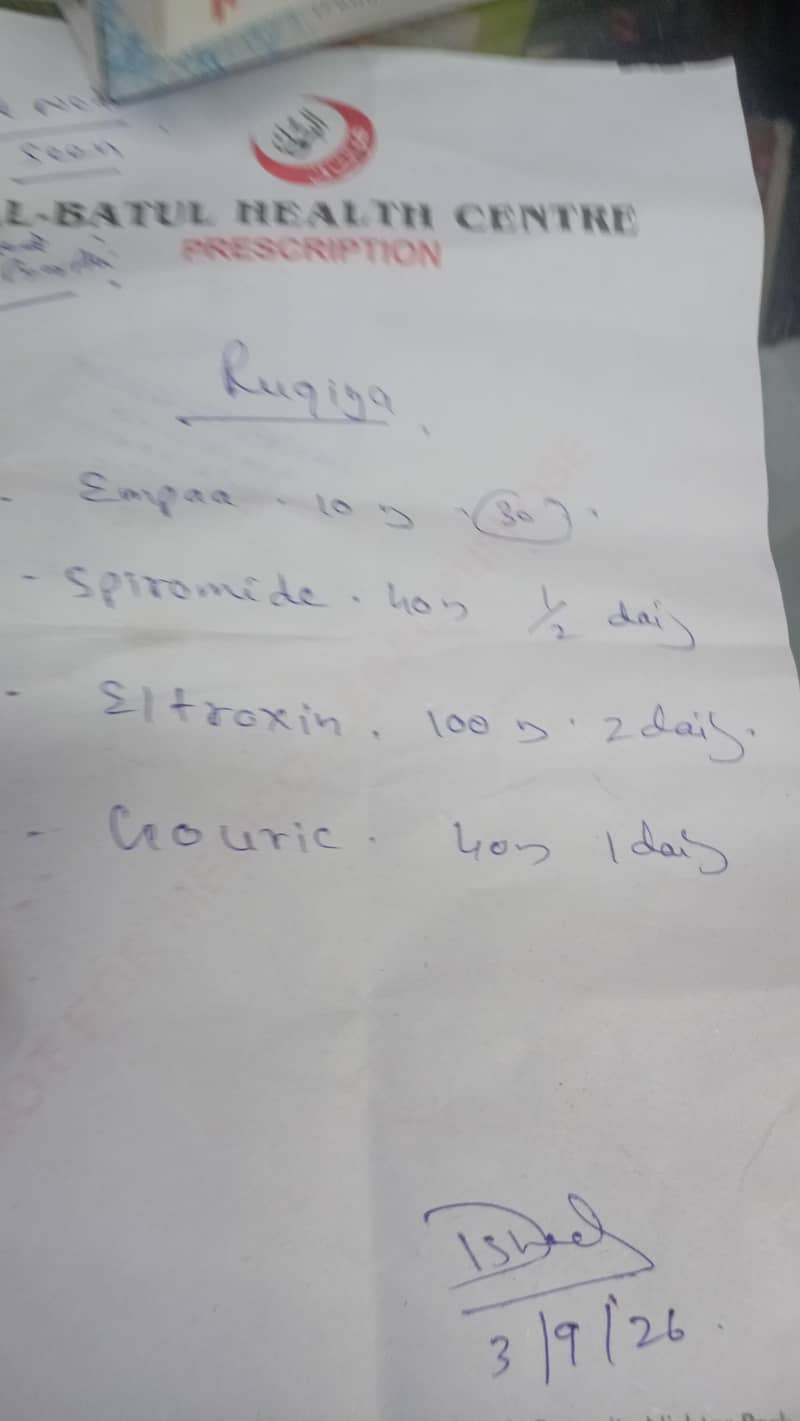 seen
L-BATUL HEALTH CENTRE
PRESCRIPTION
Ruqiya
- Empaa . 10
- Spiromide . 40 1/2 daily
- Eltroxin . 100 . 2 daily.
- Gouric . 40 1 daily
3/9/26